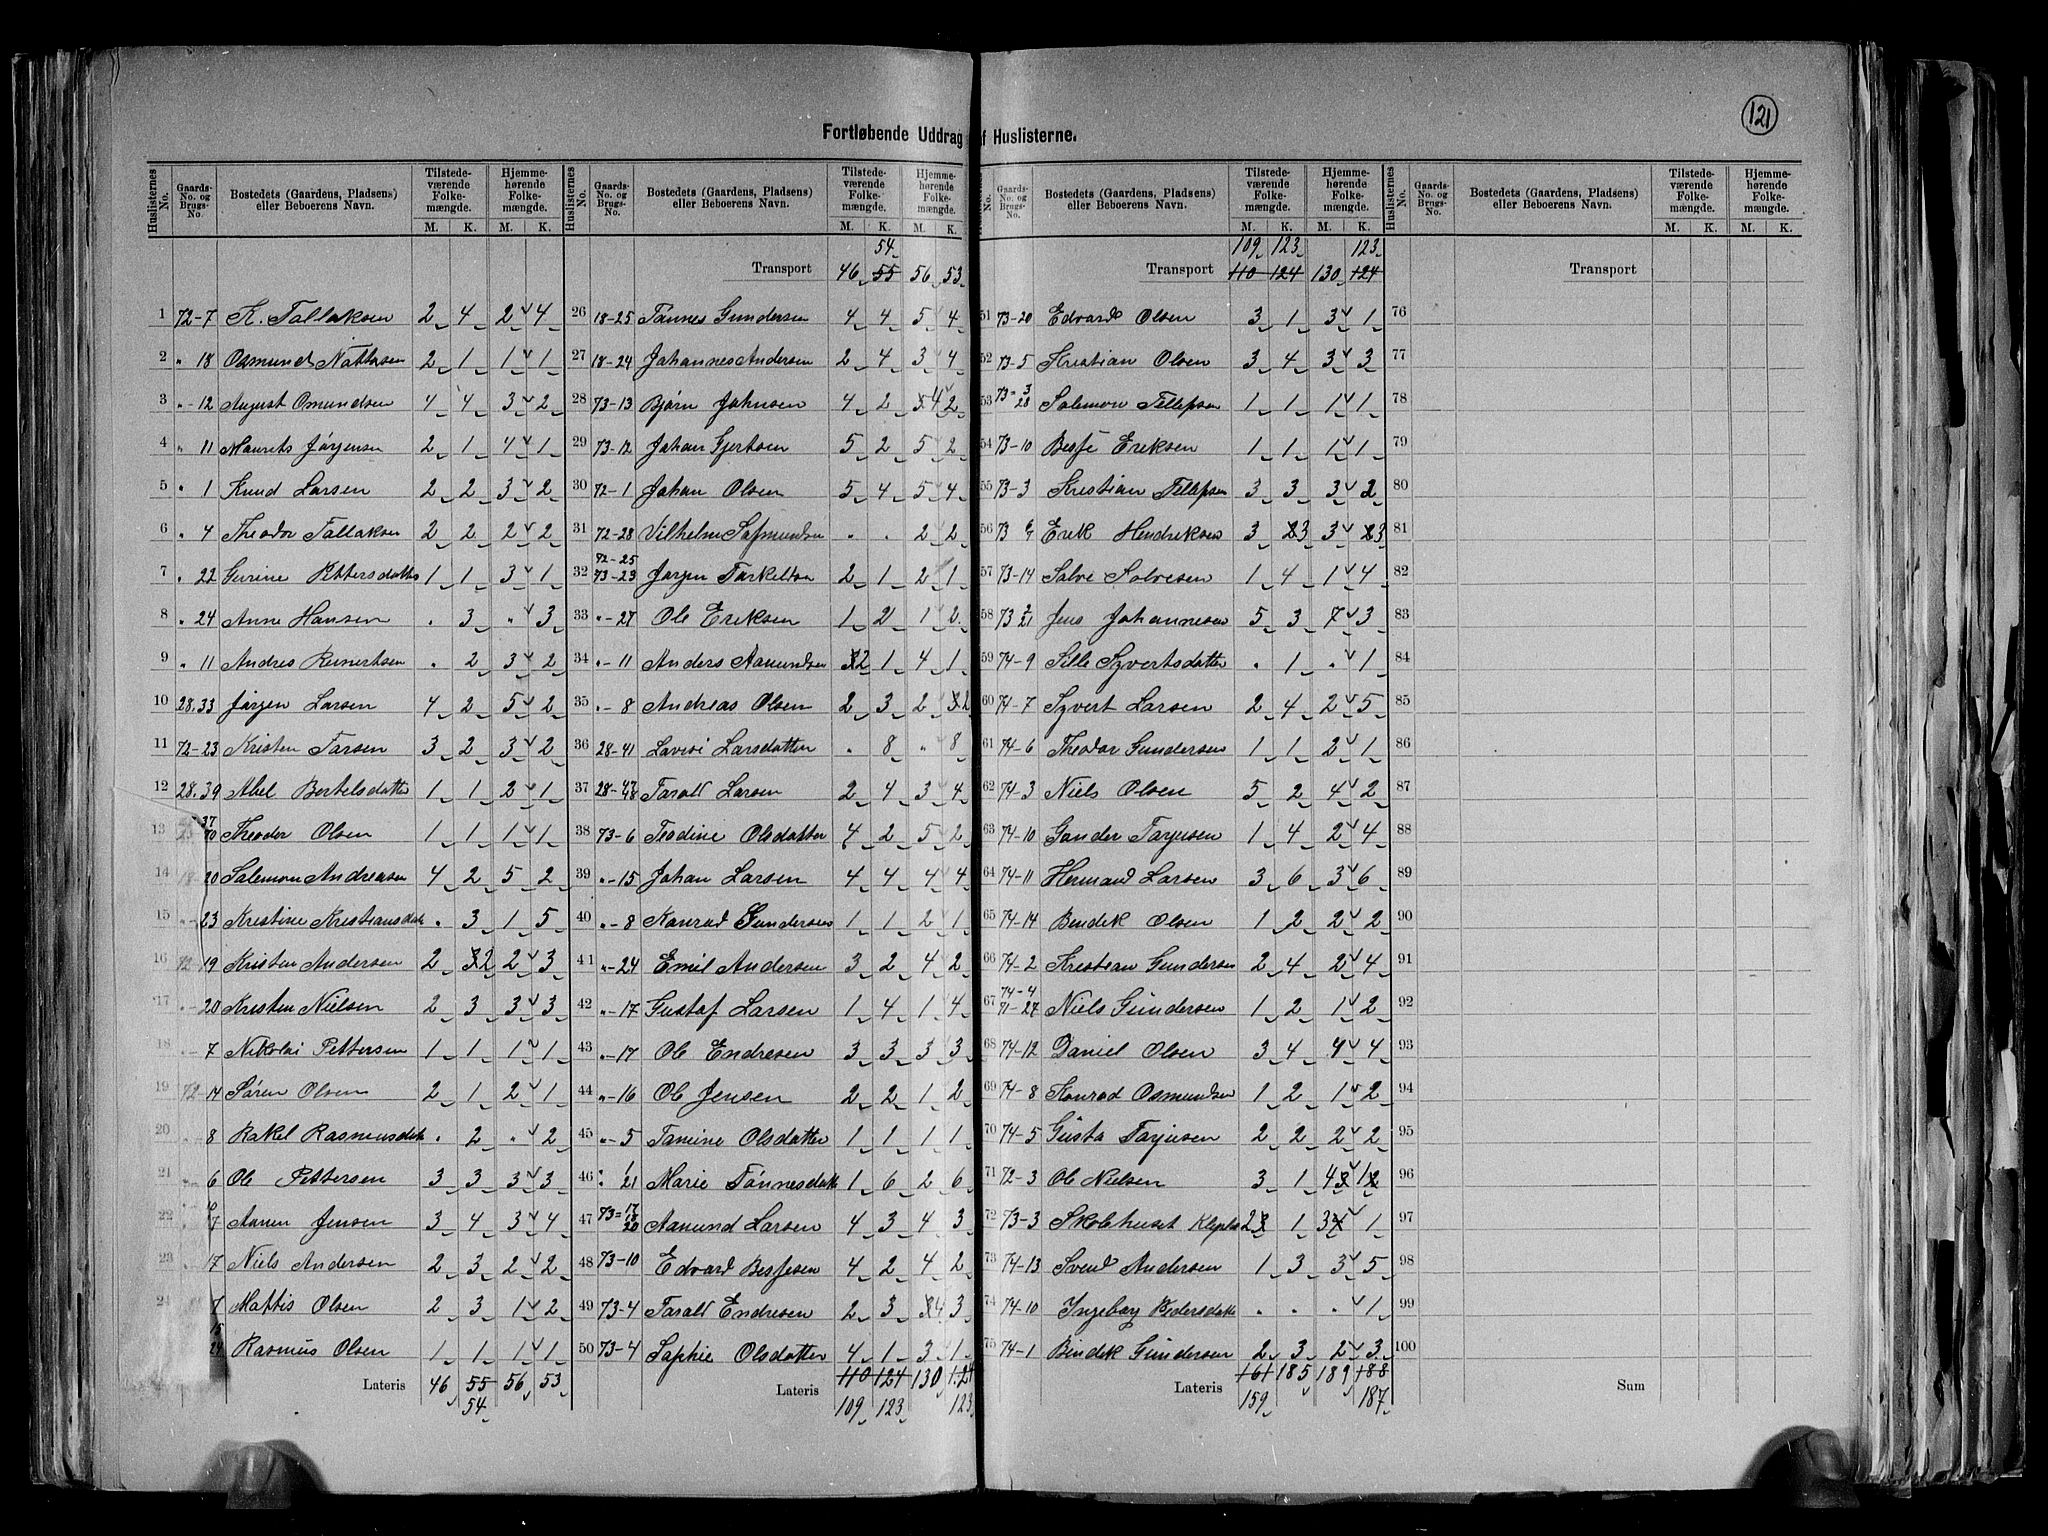 121
Fortløbende Uddrag f Huslisterne.
Huslisternes No. Gaards-No. og Brugs-No. Bostedets (Gaardens, Pladsens) eller Beboerens Navn. Tilstedeværende Folkemængde. M. K. Hjemmehørende Folkemængde. M. K.
1 72-7 K. Tallaksen 2 4 2 4
2 " 18 Osmund Nattersen 2 1 1 1
3 "-12 August Omundsen 4 4 3 2
4 " 11 Maurits Jørgensen 2 1 4 1
5 " 1 Knud Larsen 2 2 3 2
6 " 4 Theodor Tallaksen 2 2 2 2
7 " 22 Gurine Pettersdatter 1 1 3 1
8 " 24 Anne Hansen . 3 " 3
9 " 11 Andres Reinertsen . 2 3 2
10 28.33 Jørgen Larsen 4 2 5 2
11 72-23 Kristen Tarsen 3 2 3 2
12 28.39 Abel Bertelsdatter 1 1 2 1
13 37 70 Theodor Olsen 1 1 1 1
14 20 Salemon Andreasen 4 2 5 2
15 "-23 Kristine Kristiansdatt . 3 1 5
16 72-19 Kristen Andersen 2 3 2 2 3
17 "-20 Kristen Nielsen 2 3 3 3
18 7 Nikolai Pettersen 1 1 1 1
19 72-14 Søren Olsen 2 1 2 1
20 8 Rakel Rasmusdatt . 2 " 2
21 6 Ole Pettersen 3 3 3 3
22 7 Aanen Jensen 3 4 3 4
23 17 Niels Andersen 2 3 2 2
24 7 Mattis Olsen 2 3 1 2
15 24 Rasmus Olsen 1 1 1 1
Lateris 46 55 56 53
54
Huslisternes No. Gaards-No. og Brugs-No. Bostedets (Gaardens, Pladsens) eller Beboerens Navn. Tilstedeværende Folkemængde. M. K. Hjemmehørende Folkemængde. M. K.
54
Transport 46 55 56 53
26 18-25 Tønnes Gundersen 4 4 5 4
27 18-24 Johannes Andersen 2 4 3 4
28 73-13 Bjørn Johnsen 4 2 3 4 2
29 73-12 Johan Gjertsen 5 2 5 2
30 72-1 Johan Olsen 5 4 5 4
31 72-28 Vilhelm Sigmundsen . . 2 2
32 72-25 73-23 Jørgen Tarkeldsen 2 1 2 1
33 "-27 Ole Eriksen 1 2 1 2
34 "-11 Anders Aamundsen 3 2 1 4 1
35 "-8 Andreas Olsen 2 3 2 3 2
36 28-41 Lovisi Larsdatter . 8 " 8
37 28-47 48 Taralt Larsen 2 4 3 4
38 73-6 Teodine Olsdatter 4 2 5 2
39 "-15 Johan Larsen 4 4 4 4
40 "-8 Konrad Gundersen 1 1 2 1
41 "-24 Emil Andersen 3 2 4 2
42 "-17 Gustaf Larsen 1 4 1 4
43 "-17 Ole Endresen 3 3 3 3
44 "-16 Ole Jensen 2 2 1 2
45 "-5 Tamine Olsdatter 1 1 1 1
46 " 1 21 Marie Tønnesdatt 1 6 2 6
47 73= 17 18 20 Aamund Larsen 4 3 4 3
48 73-10 Edvard Besjesen 4 2 4 2
49 73-4 Taralt Endresen 2 3 3 4 3
50 73-4 Sophie Olsdatter 4 1 3 1
Lateris 110 124 130 124
109 123 123
No. Gaards-No. og Brugs-No. Bostedets (Gaardens, Pladsens) eller Beboerens Navn. Tilstedeværende Folkemængde. M. K. Hjemmehørende Folkemængde. M. K.
109 123 123
Transport 110 124 130 124
51 73-20 Edvard Olsen 3 1 3 1
52 73-5 Kristian Olsen 3 4 3 3
53 73= 3 28 Salemon Tellefsen 1 1 1 1
54 73-10 Besje Eriksen 1 1 1 1
55 73-3 Kristian Tellefsen 3 3 3 2
56 73 Erik Hendriksen 3 2 3 3 2 3
57 73-14 Salve Salvesen 1 4 1 4
58 73 2 21 Jens Johannesen 5 3 7 3
59 74-9 Sille Syvertsdatter . 1 " 1
60 74-7 Syvert Larsen 2 4 2 5
61 74-6 Theodor Gundersen 1 1 2 1
62 74-3 Niels Olsen 5 2 4 2
63 74-10 Gunder Tarjusen 1 4 2 4
64 74-11 Hermand Larsen 3 6 3 6
65 74-14 Bendik Olsen 1 2 2 2
66 74-2 Kristian Gundersen 2 4 2 4
67 74-4 71-27 Niels Gundersen 1 2 1 2
68 74-12 Daniel Olsen 3 4 4 4
69 74-8 Konrad Osmundsen 1 2 1 2
70 74-5 Gusta Tarjusen 2 2 2 2
71 72-3 Ole Nielsen 3 1 4 3 1 2
72 73-3 Skolehuset 2 3 1 3 4 1
73 74-13 Svend Andersen 1 3 3 5
74 74-10 Ingeborg Pedersdatt . . . 1
75 74-1 Bendik Gundersen 2 3 2 3
Lateris 161 185 189 188
159 187
Huslisternes No. Gaards-No. og Brugs-No. Bostedets (Gaardens, Pladsens) eller Beboerens Navn. Tilstedeværende Folkemængde. M. K. Hjemmehørende Folkemængde. M. K.
Transport
76
77
78
79
80
81
82
83
84
85
86
87
88
89
90
91
92
93
94
95
96
97
98
99
100
Sum